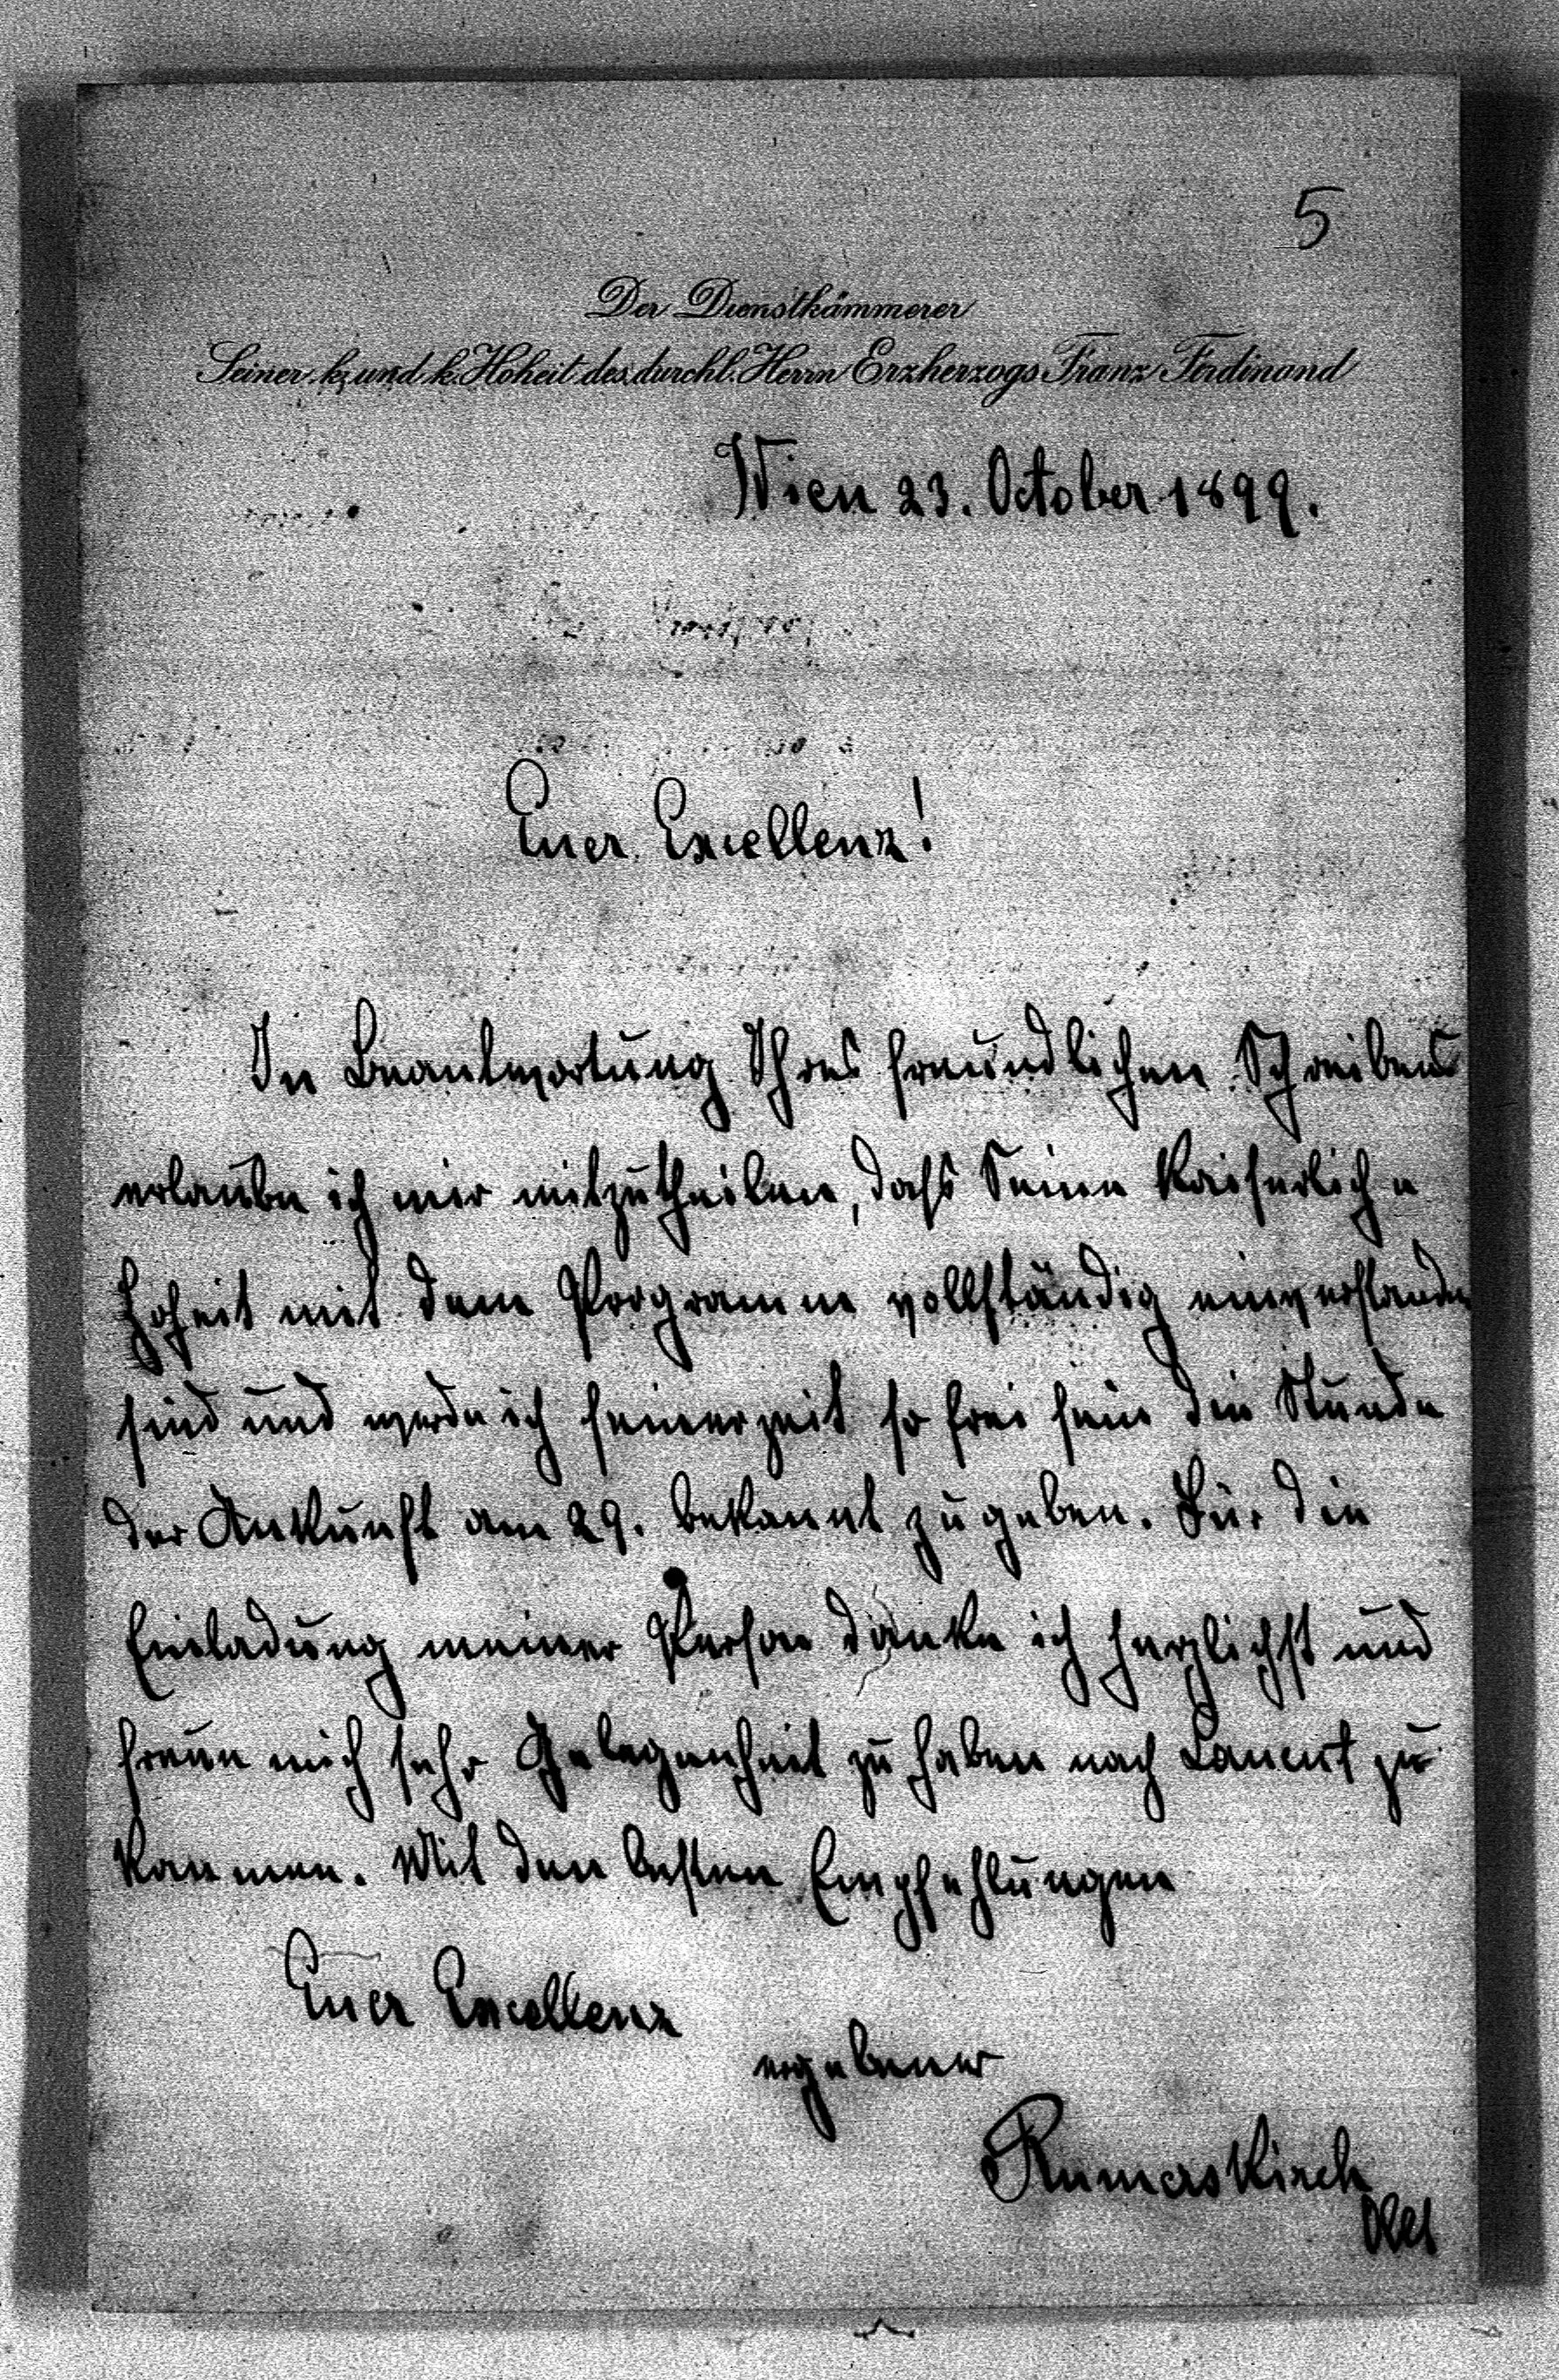 5
Der Dienstkämmerer
Seiner k. und k. Hoheit des durchl. Herrn Erzherzogs Franz Ferdinand
Wien 23. October 1899.
Euer Excellenz!
In Beantwortung Ihres freundlichen Schreibens
erlaube ich mir mitzutheilen, daß Seine Kaiserliche
Hoheit mit dem Programm vollständig einverstanden
sind und werde ich seinerzeit so frei sein die Stunde
der Ankunft am 29. bekannt zu geben. Für die
Einladung meiner Person danke ich herzlichst und
freue mich sehr Gelegenheit zu haben nach Lancut zu
kommen. Mit den besten Empfehlungen
Euer Excellenz
ergebener
Rumerskirch